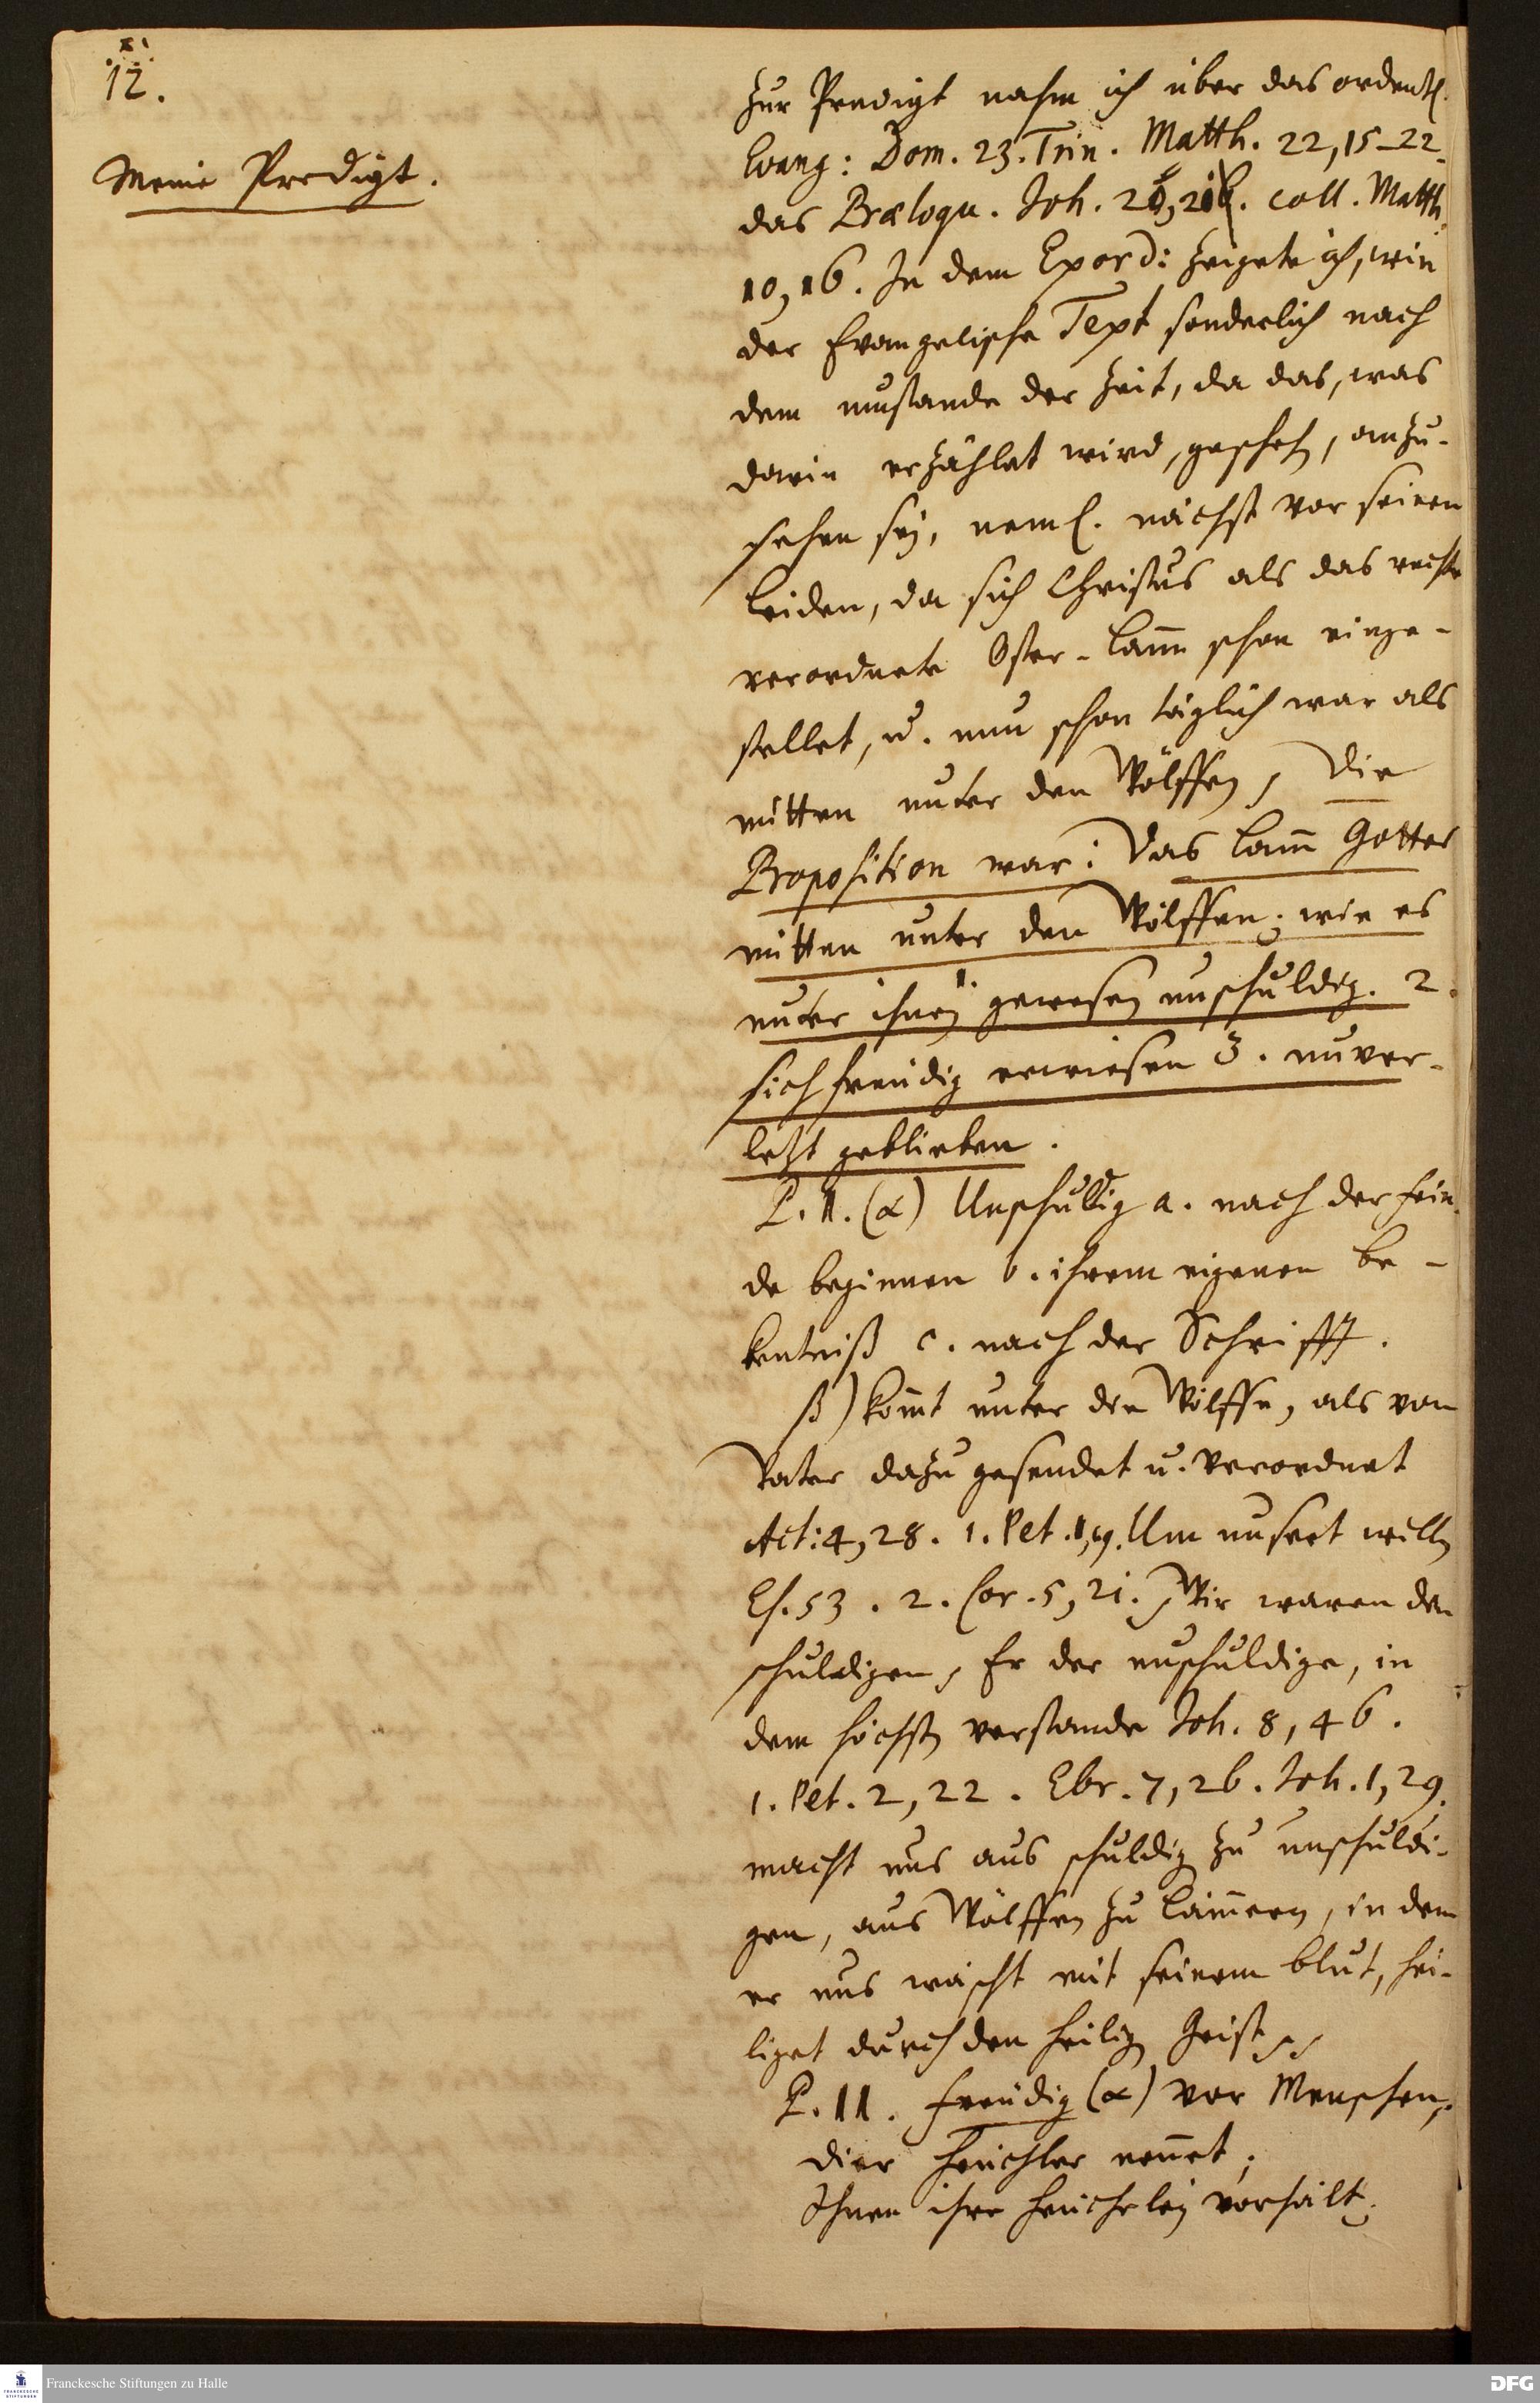 12.
Meine Predigt.
Zur Predigt nahm ich über das ordentl.
Evang: Dom. 23. Trin. Matth. 22, 15-22.
das Præloqu. Joh. 20, 21. coll. Matth.
10, 16. In dem Exord: zeigete ich, wie
der Evangelische Text sonderlich nach
dem umstande der Zeit, da das, was
darin erzählet wird, gescheh, anzu-
sehen sey, neml. nächst vor seinen
leiden, da sich Christus als das rechte
verordnete Oster-Lam̃ schon einge-
stellet, u. nun schon täglich war als
mitten unter den Wölffen, Die
Proposition war: Das Lam̃ Gottes
mitten unter den Wölffen; wie es
unter ihnen 1. gewesen unschuldig. 2.
sich freudig erwiesen 3. unver-
letzt geblieben.
P. I. (α) Unschuldig a. nach der Fein-
de beginnen b. ihrem eigenen be-
kentniß c. nach der Schrifft.
β) kom̃t unter die Wölffe, als vom
Vater dazu gesendet u. verordnet
Act: 4, 28. 1. Pet. 1, 19. Um unsert willen
Es. 53. 2. Cor. 5, 21. Wir waren die
schuldigen, Er der unschuldige, in
dem höchsten verstande Joh. 8, 46.
1. Pet. 2, 22. Ebr. 7, 26. Joh. 1, 29.
macht uns aus schuldig zu unschuldi-
gen, aus Wölffen zu Läm̃ern, in dem
er uns wäscht mit seinem blut, hei-
liget durch den heilig Geist
P. II. freudig (α) vor Menschen,
die er Heuchler nennet;
Ihnen ihre heucheley vorhält;
Franckesche Stiftungen zu Halle
DFG